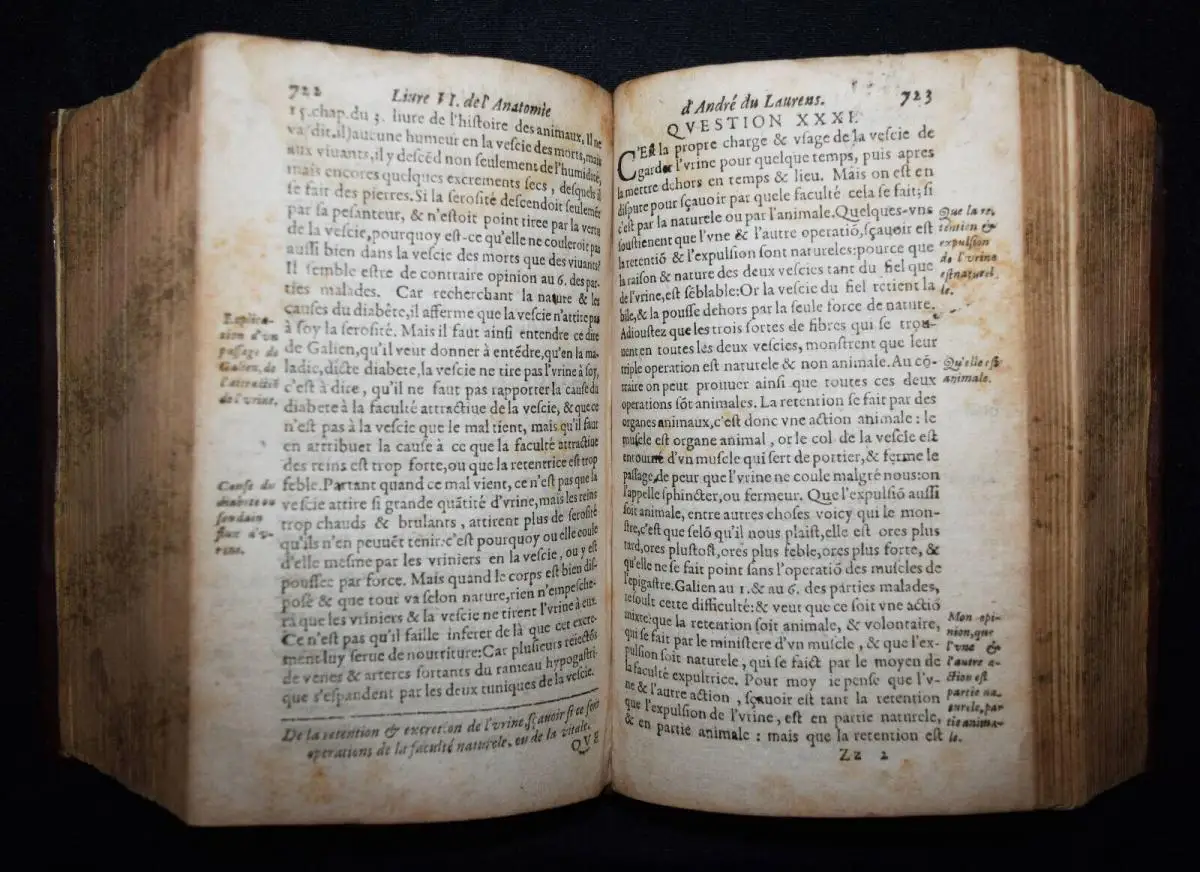 722
Liure VI. de l'Anatomie
15. chap. du 3. liure de l'histoire des animaux, Il ne
va dit-il) aucune humeur en la vescie des morts, mais
aux viuants, il y descēd non seulement de l'humidité,
mais encores quelques excrements secs, desquels il
se fait des pierres. Si la serosité descendoit seulemēt
par sa pesanteur, & n'estoit point tiree par la vertu
de la vescie, pourquoy est-ce qu'elle ne couleroit pas
aussi bien dans la vescie des morts que des viuants?
Il semble estre de contraire opinion au 6. des par-
ties malades. Car recherchant la nature & les
causes du diabète, il afferme que la vescie n'attire pas
à soy la serosité. Mais il faut ainsi entendre ce dire
de Galien, qu'il veut donner à entēdre, qu'en la ma-
ladie, dicte diabete, la vescie ne tire pas l'vrine à soy,
c'est à dire, qu'il ne faut pas rapporter la cause du
diabete à la faculté attractiue de la vescie, & que ce
n'est pas à la vescie que le mal tient, mais qu'il faut
en attribuer la cause à ce que la faculté attractiue
des reins est trop forte, ou que la retentrice est trop
feble. Partant quand ce mal vient, ce n'est pas que la
vescie attire si grande quātité d'vrine, mais les reins
trop chauds & brulants, attirent plus de serosité
qu'ils n'en peuuēt tenir: c'est pourquoy ou elle coule
d'elle mesme par les vriniers en la vescie, ou y est
poussee par force. Mais quand le corps est bien dis-
posé & que tout va selon nature, rien n'empesche-
ra que les vriniers & la vescie ne tirent l'vrine à eux.
Ce n'est pas qu'il faille inferer de là que cet excre-
ment luy serue de nourriture: Car plusieurs reiectōs
de venes & arteres sortants du rameau hypogastri-
que s'espandent par les deux tuniques de la vescie.
Explica-
tion d'vn
passage de
Galien, de
l'attractiō
de l'vrine.
Cause du
diabete ou
soudain
flux d'v-
rine.
De la retention & excretion de l'vrine, sçauoir si ce sont
operations de la faculté naturele, ou de la vitale.
QVE
d'André du Laurens.
723
QVESTION XXXI.
C'Est la propre charge & vsage de la vescie de
garder l'vrine pour quelque temps, puis apres
la mettre dehors en temps & lieu. Mais on est en
dispute pour sçauoir par quelle faculté cela se fait; si
c'est par la naturele ou par l'animale. Quelques-vns
soustienent que l'vne & l'autre operatiō, sçauoir est
la retentiō & l'expulsion sont natureles: pource que
la raison & nature des deux vescies tant du fiel que
de l'vrine, est sēblable: Or la vescie du fiel retient la
bile, & la pousse dehors par la seule force de nature.
Adioustez que les trois sortes de fibres qui se trou-
uent en toutes les deux vescies, monstrent que leur
triple operation est naturele & non animale. Au cō-
traire on peut prouuer ainsi que toutes ces deux
operations sōt animales. La retention se fait par des
organes animaux, c'est donc vne action animale: le
muscle est organe animal, or le col de la vescie est
entourné d'vn muscle qui sert de portier, & ferme le
passage, de peur que l'vrine ne coule malgré nous: on
l'appelle sphincter, ou fermeur. Que l'expulsiō aussi
soit animale, entre autres choses voicy qui le mon-
stre, c'est que selō qu'il nous plaist, elle est ores plus
tard, ores plustost, ores plus feble, ores plus forte, &
qu'elle ne se fait point sans l'operatiō des muscles de
l'epigastre. Galien au 1. & au 6. des parties malades,
resoult cette difficulté: & veut que ce soit vne actiō
mixte: que la retention soit animale, & volontaire,
qui se fait par le ministere d'vn muscle, & que l'ex-
pulsion soit naturele, qui se faict par le moyen de
la faculté expultrice. Pour moy ie pense que l'v-
ne & l'autre action, sçauoir est tant la retention
que l'expulsion de l'vrine, est en partie naturele,
& en partie animale: mais que la retention est
Que la re-
tention &
expulsion
de l'vrine
est naturel-
le.
Qu'elle est
animale.
Mon opi-
nion, que
l'vne &
l'autre a-
ction est
partie na-
turele, par
tie anima-
le.
Zz 2